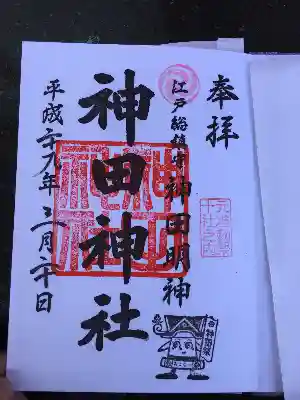 奉拝
江戸総鎮守 神田明神
神田神社
平成二十九年 三月二十日